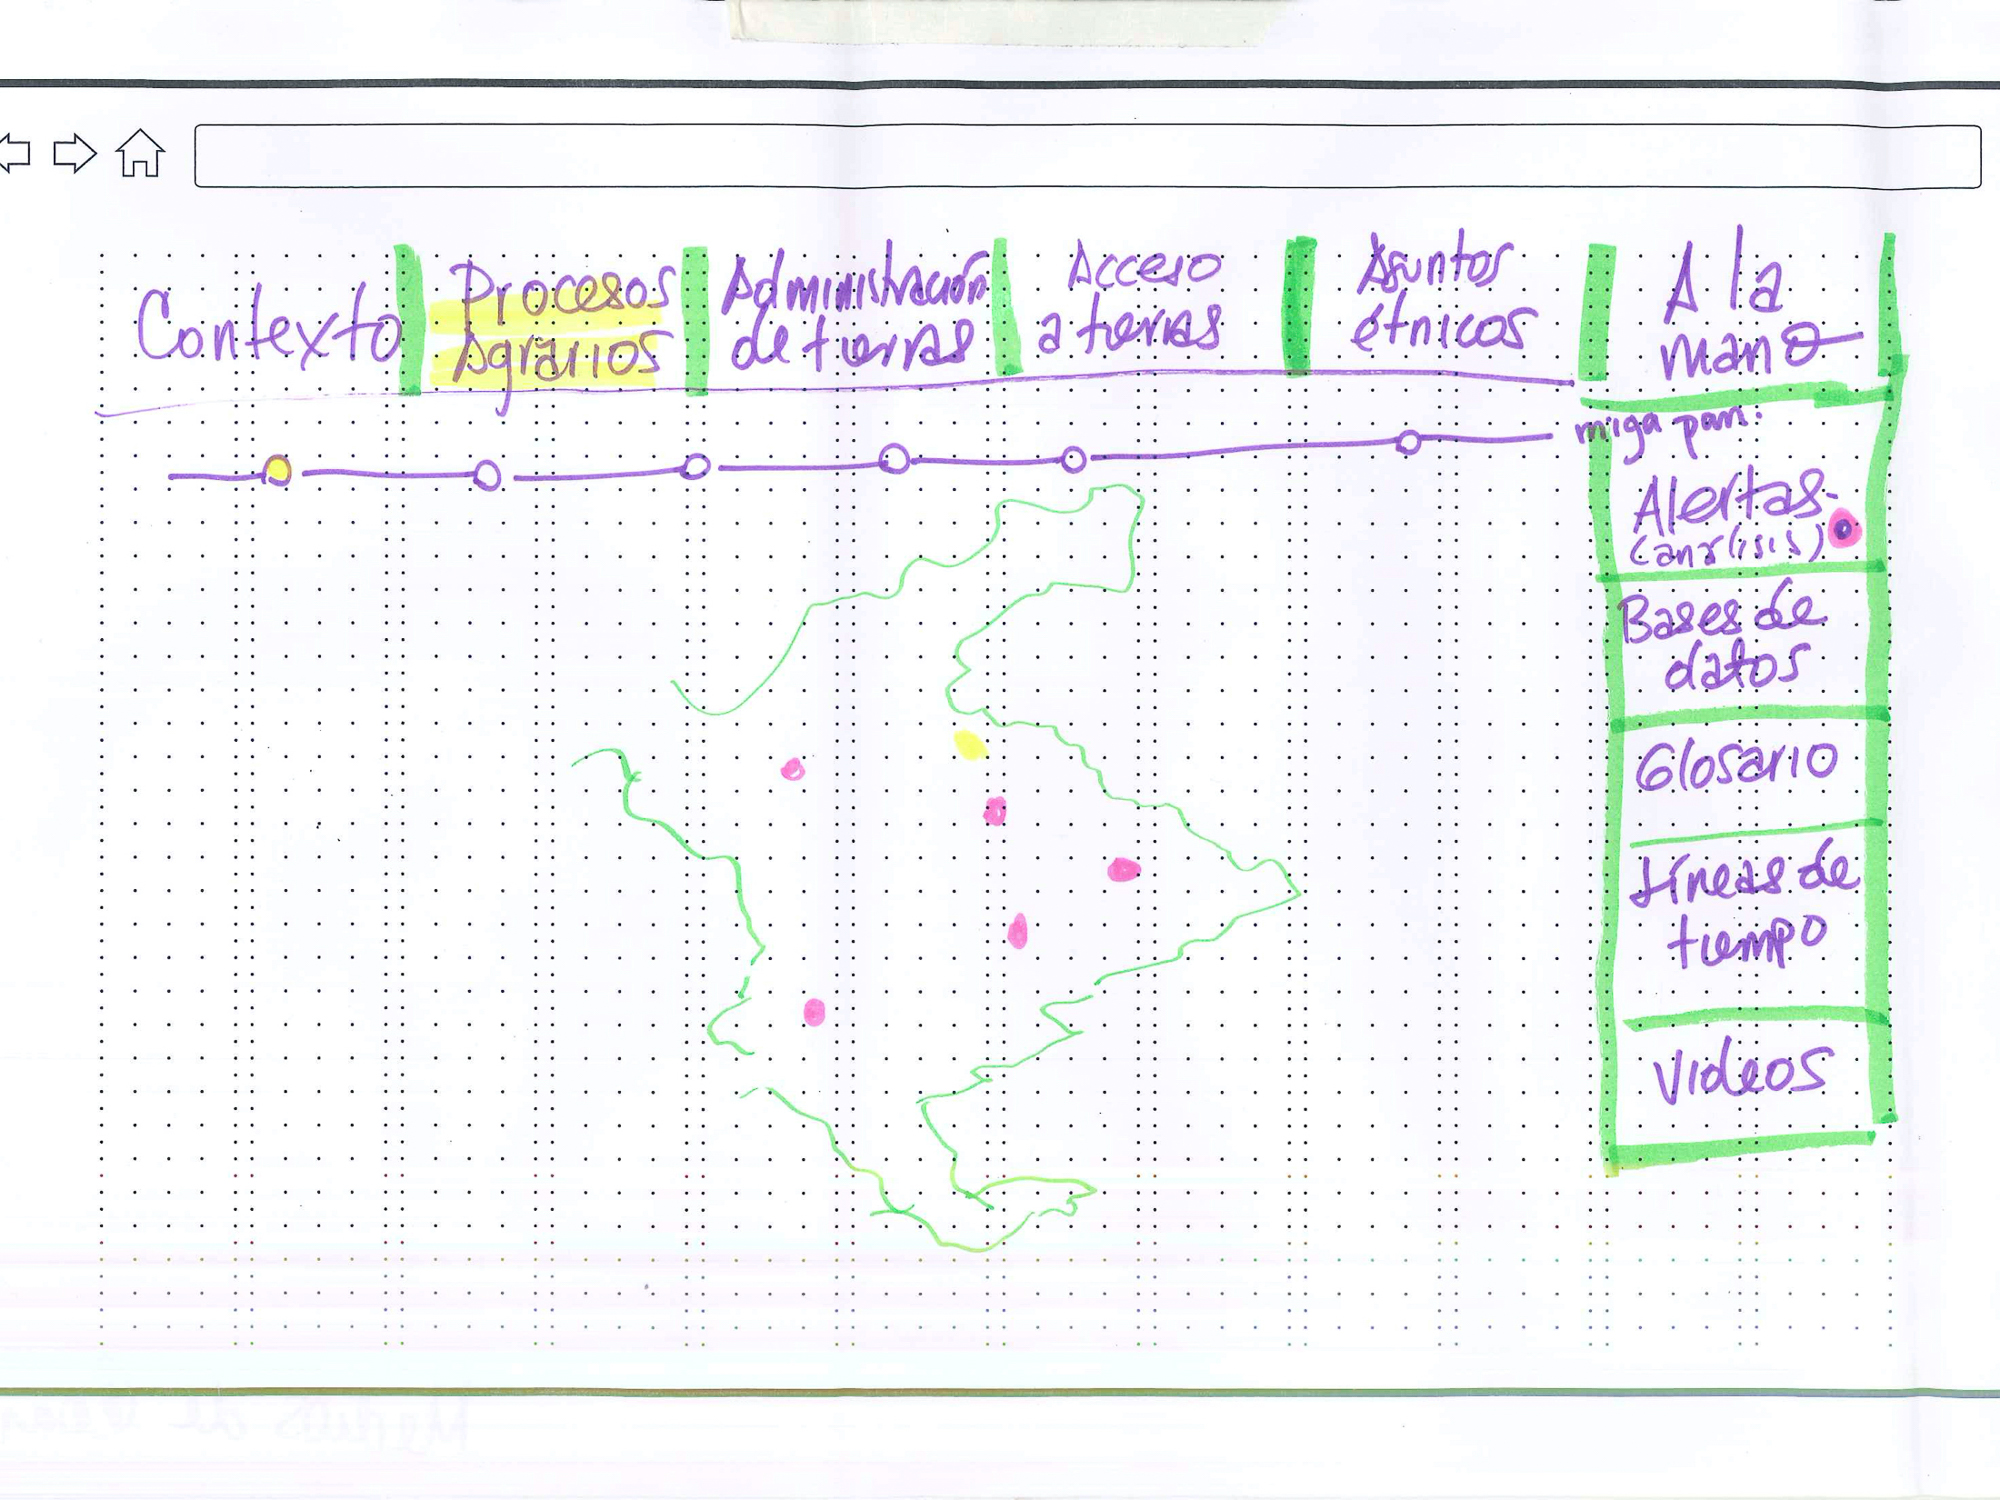 Contexto
Procesos
Agrarios
Administración
de tierras
Acceso
a tierras
Asuntos
étnicos
A la
mano
miga pan:
Alertas
(análisis)
Bases de
datos
Glosario
Líneas de
tiempo
Videos